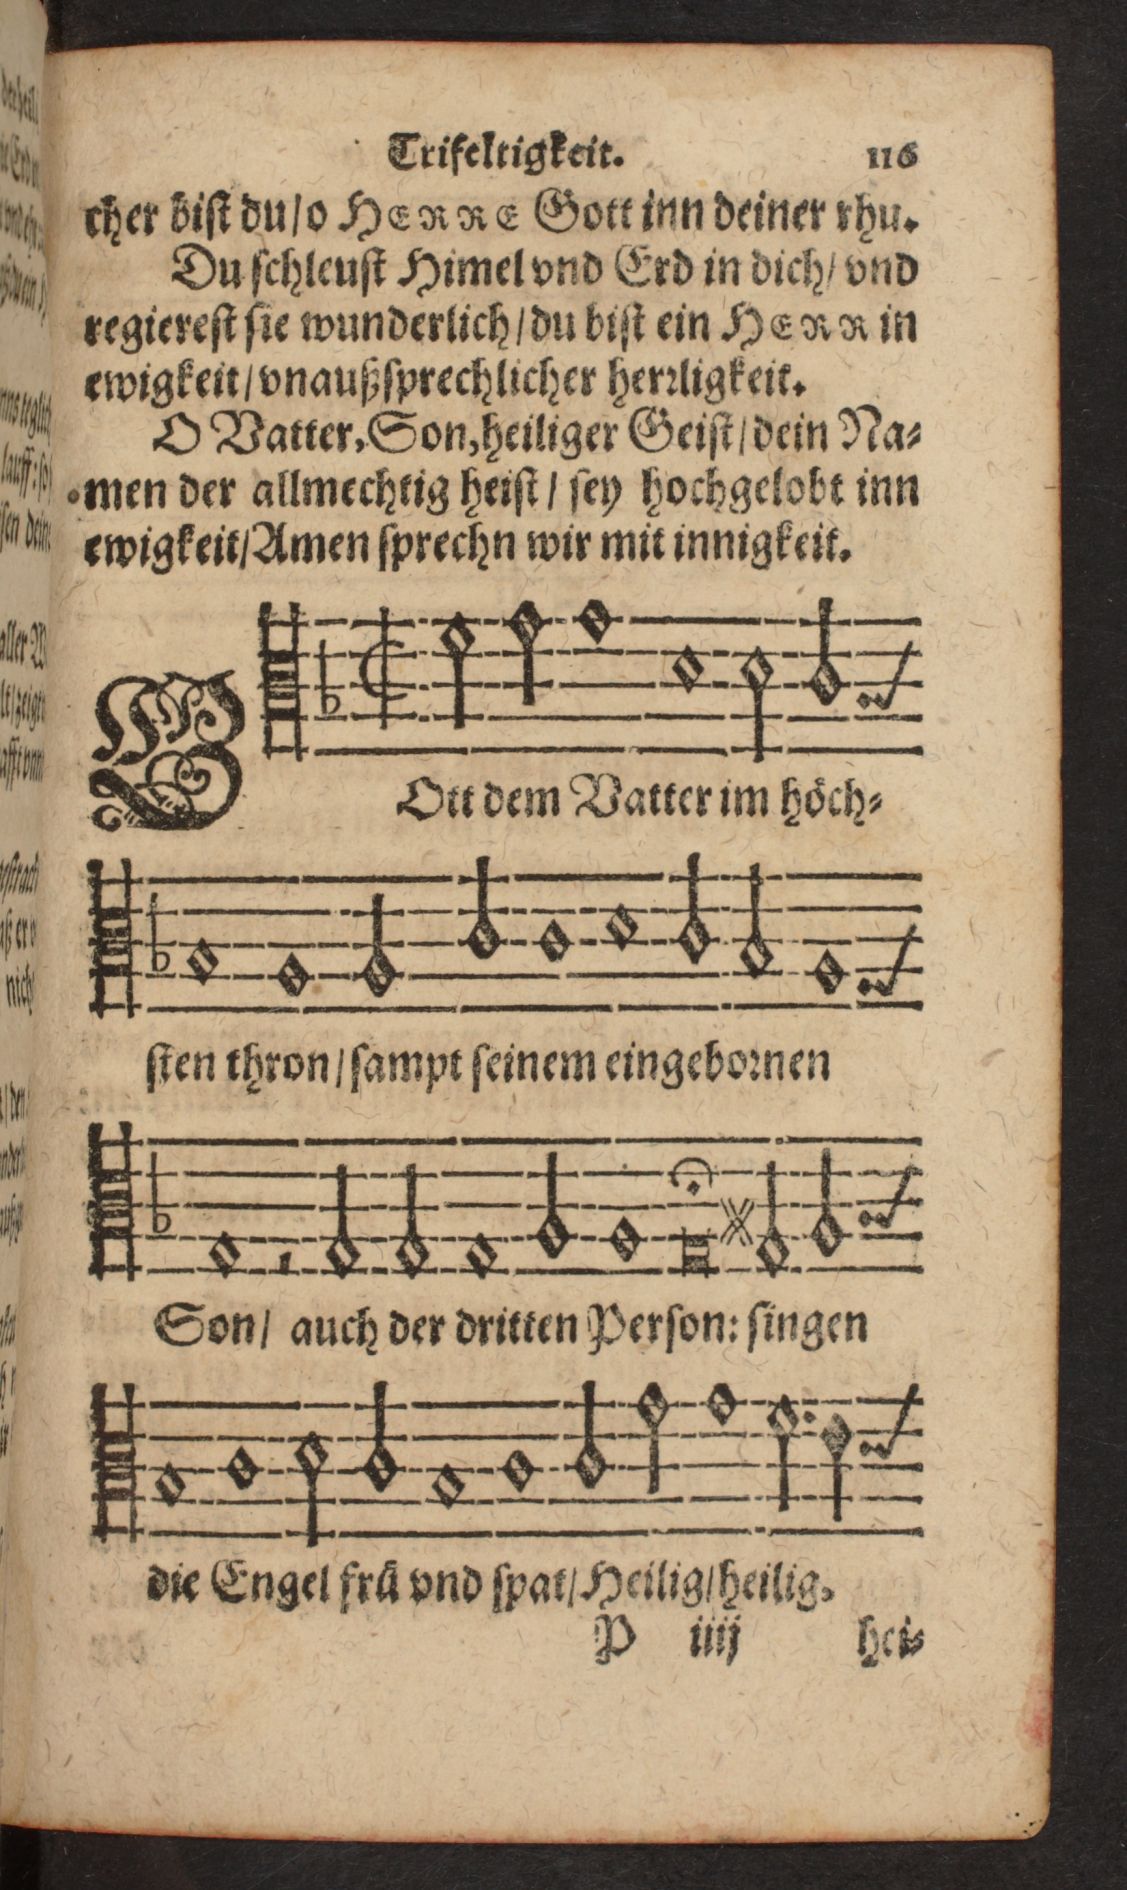 Trifeltigkeit. 116
cher bist du/o HERRE Gott inn deiner rhu.
Du schleust Himel vnd Erd in dich/ vnd
regierest sie wunderlich/du bist ein HERR in
ewigkeit/vnaußsprechlicher herrligkeit.
O Vatter, Son, heiliger Geist/dein Na-
men der allmechtig heist/ sey hochgelobt inn
ewigkeit/Amen sprechn wir mit innigkeit.
GOtt dem Vatter im höch-
sten thron/sampt seinem eingebornen
Son/ auch der dritten Person: singen
die Engel frü vnd spat/Heilig/heilig,
P iiij hei-